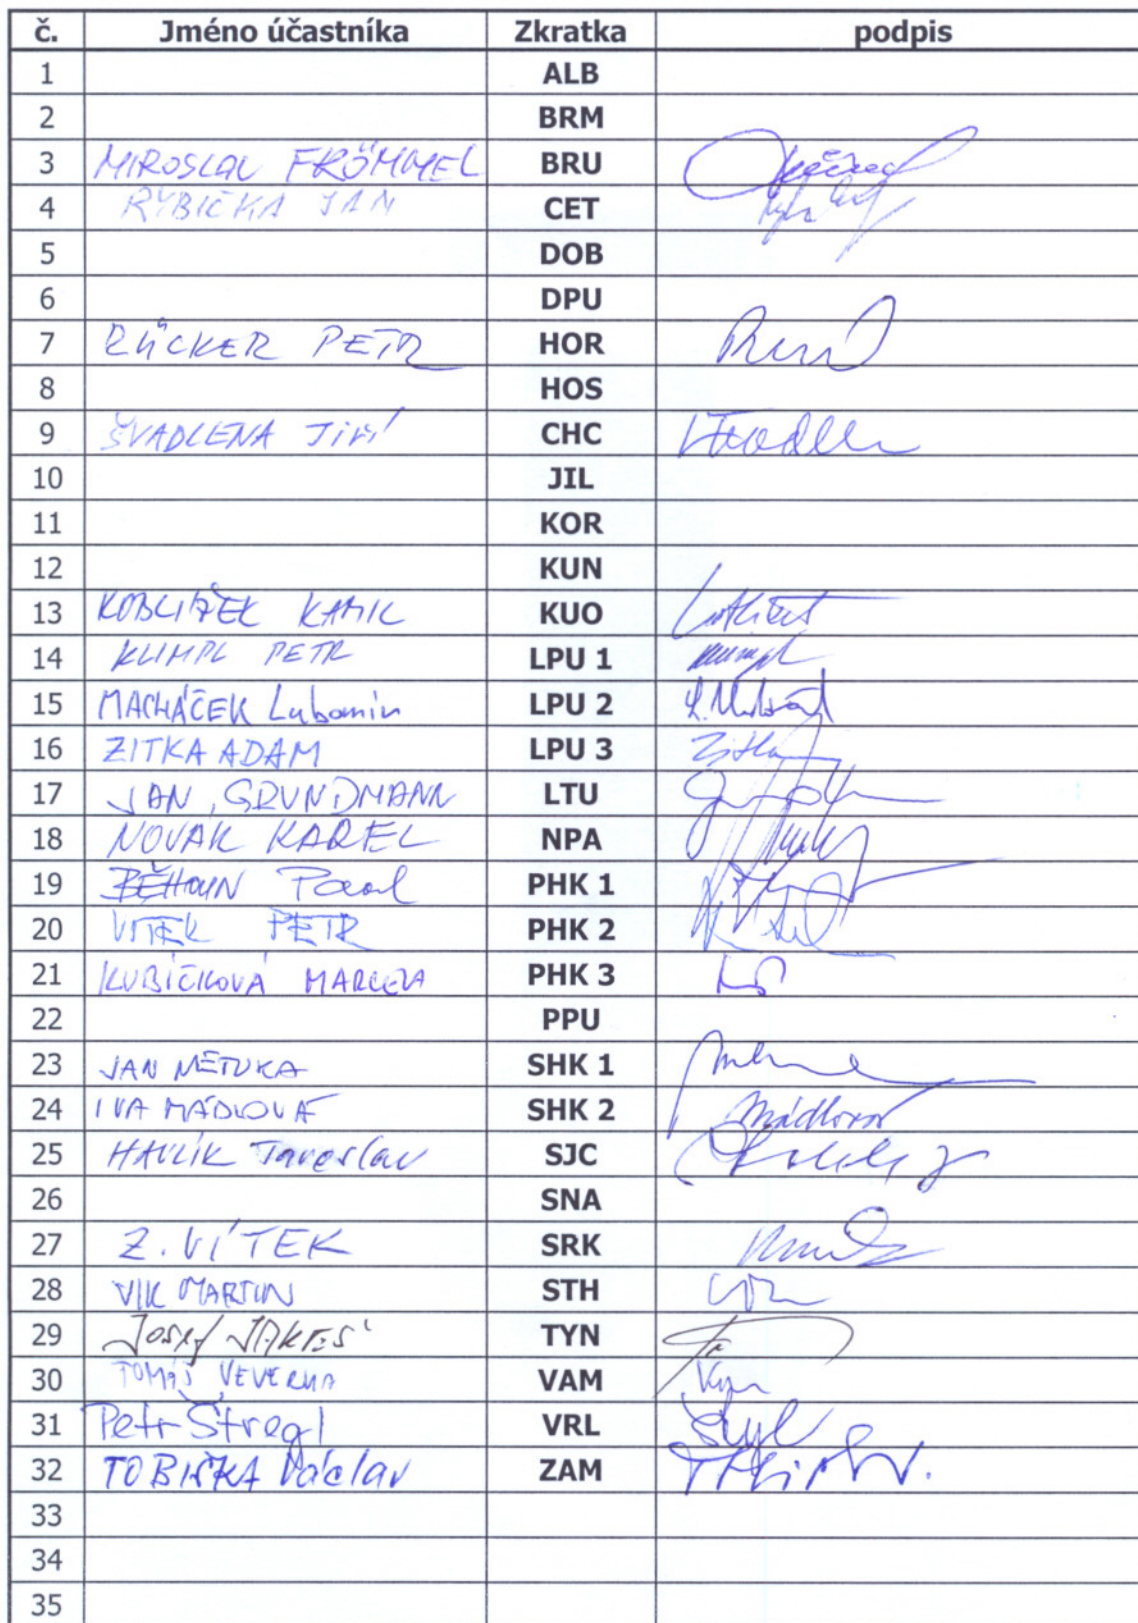 č. Jméno účastníka Zkratka podpis
1 ALB
2 BRM
3 MIROSLAV FRÖMMEL BRU
4 RYBIČKA JAN CET
5 DOB
6 DPU
7 RŮCKER PETR HOR
8 HOS
9 ŠVADLENA JIŘÍ CHC
10 JIL
11 KOR
12 KUN
13 KOBLIŽEK KAMIL KUO
14 KLIMPL PETR LPU 1
15 MACHÁČEK Lubomír LPU 2
16 ZITKA ADAM LPU 3 Zitka
17 JAN GRUNDMANN LTU
18 NOVÁK KAREL NPA
19 BĚHOUN Pavel PHK 1
20 VÍTEK PETR PHK 2
21 KUBÍČKOVÁ MARCELA PHK 3
22 PPU
23 JAN METUKA SHK 1
24 IVA MÁDLOVÁ SHK 2 Mádlová
25 HAVLÍK Jaroslav SJC
26 SNA
27 Z. VÍTEK SRK
28 VIK MARTIN STH
29 Josef TYN
30 TOMÁŠ VEVERKA VAM
31 Petr Štregl VRL
32 TOBIŠKA Václav ZAM
33
34
35